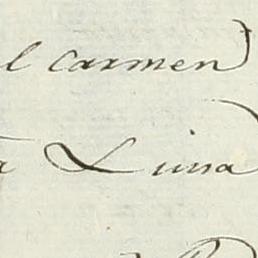 l Carmen
a Luna